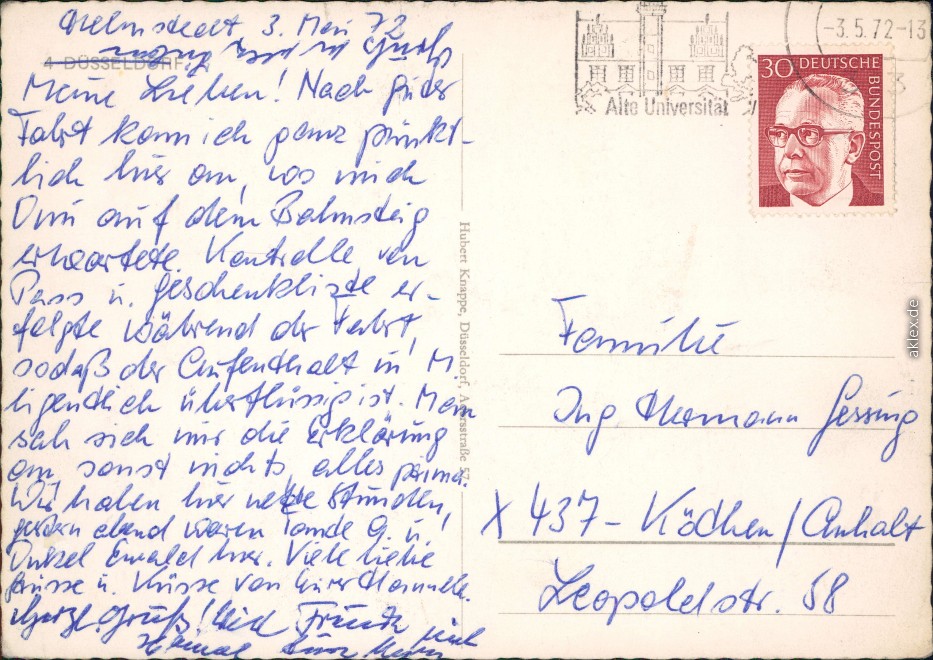 Helmstedt 3. Mai 72
4 DÜSSELDORF
Meine Lieben! Nach guter
Fahrt kam ich ganz pünkt-
lich hier an, wo mich
auf dem Bahnsteig
erwartete. Kontrolle von
Pass u. Geschenkliste er-
folgte während der Fahrt,
sodaß der Aufenthalt in M.
eigentlich überflüssig ist. Man
sah sich nur die Erklärung
an, sonst nichts, alles prima.
Wir haben hier nette Stunden,
gestern abend waren Tante G. u.
Onkel Ewald hier. Viele liebe
Grüsse u. Küsse von Eurer Hannele.
Herzl. Gruß!
Hubert Knappe, Düsseldorf,
Alte Universität
-3.5.72-13
30 DEUTSCHE
BUNDESPOST
Familie
Ing Hermann Gessing
X 437 - Köthen/Anhalt
Leopoldstr. 58
aklex.de